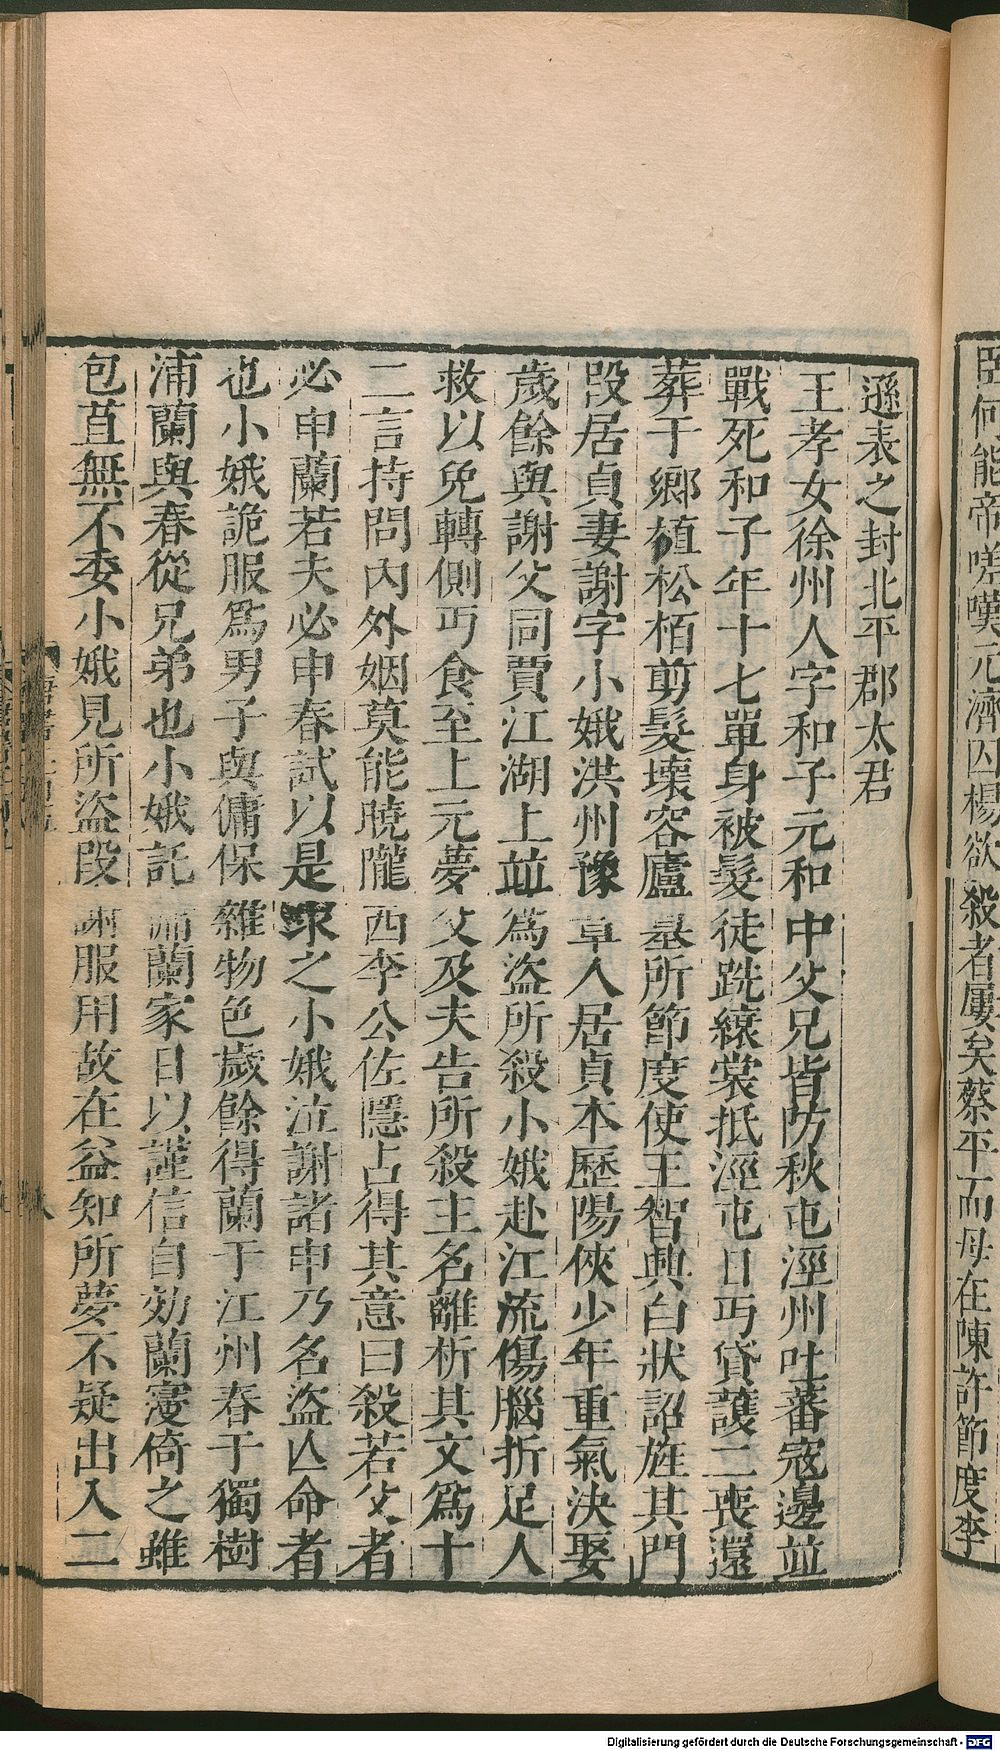 臣何能帝嗟嘆元濟囚楊欲殺者屢矣蔡平而母在陳許節度李
遜表之封北平郡太君
王孝女徐州人字和子元和中父兄皆防秋屯涇州吐蕃寇邊並
戰死和子年十七單身被髮徒跣縗裳抵涇屯日丐貸護二喪還
葬于鄉植松栢剪髮壞容廬墓所節度使王智興白狀詔旌其門
段居貞妻謝字小娥洪州豫章人居貞本歷陽俠少年重氣決娶
歲餘與謝父同賈江湖上並爲盜所殺小娥赴江流傷腦折足人
救以免轉側丐食至上元夢父及夫告所殺主名離析其文爲十
二言持問內外姻莫能曉隴西李公佐隱占得其意曰殺若父者
必申蘭若夫必申春試以是求之小娥泣謝諸申乃名盜亡命者
也小娥詭服爲男子與傭保雜物色歲餘得蘭于江州春于獨樹
浦蘭與春從兄弟也小娥託傭蘭家日以謹信自効蘭寖倚之雖
包苴無不委小娥見所盜段謝服用故在益知所夢不疑出入二
Digitalisierung gefördert durch die Deutsche Forschungsgemeinschaft - DFG